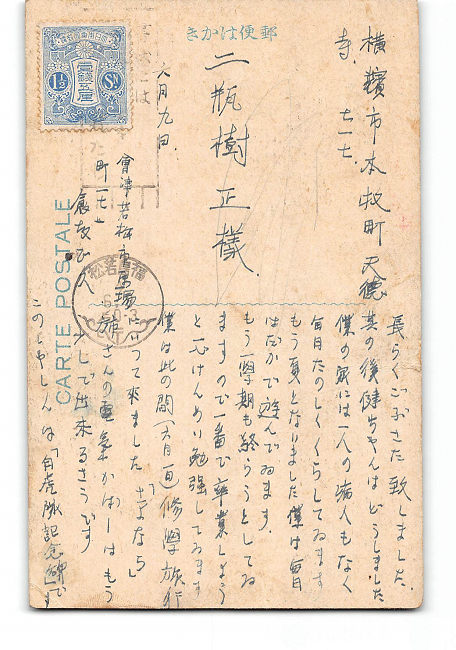 郵便はかき
CARTE POSTALE
1½ Sn
壹錢五厘
横濱市本牧町天德
寺、七一七、
二瓶樹正様
六月九日
會津若松市馬場
町一七
長らくごぶさた致しました
其の後健ちゃんはどうしました
僕の家には一人の病人もなく
毎日たのしくくらしてゐます
もう夏となりました僕は毎日
はだかで遊んでゐます。
もう一學期も終らうとしてゐ
ますので一番で卒業しよう
と一心けんめい勉強してゐます
僕は此の間(六月一日)修學旅行
に行って來ました さよなら
さんの電氣かばーはもう
少しで出來るさうです
このしゃしんは「白虎隊記念碑です